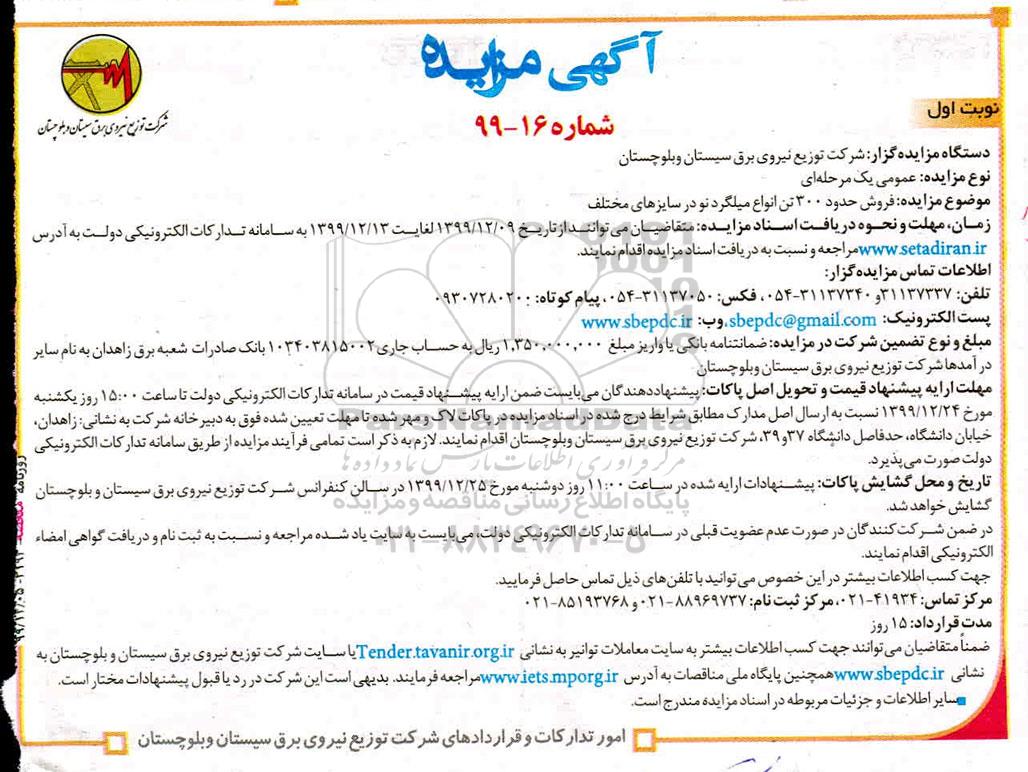 آگهی مزایده
شرکت توزیع نیروی برق سیستان و بلوچستان
نوبت اول
شماره ۱۶-۹۹
دستگاه مزایده گزار: شرکت توزیع نیروی برق سیستان وبلوچستان
نوع مزایده: عمومی یک مرحله‌ای
موضوع مزایده: فروش حدود ۳۰۰ تن انواع میلگرد نو در سایزهای مختلف
زمان، مهلت و نحوه دریافت اسناد مزایده: متقاضیان می توانند از تاریخ ۱۳۹۹/۱۲/۰۹ لغایت ۱۳۹۹/۱۲/۱۳ به سامانه تدارکات الکترونیکی دولت به آدرس
www.setadiran.ir مراجعه و نسبت به دریافت اسناد مزایده اقدام نمایند.
اطلاعات تماس مزایده گزار:
تلفن: ۳۱۱۳۷۳۳۷ و ۳۱۱۳۷۳۴۰-۰۵۴، فکس: ۳۱۱۳۷۰۵۰-۰۵۴، پیام کوتاه: ۰۹۳۰۷۲۸۰۲۰۰
پست الکترونیک: sbepdc@gmail.com، وب: www.sbepdc.ir
مبلغ و نوع تضمین شرکت در مزایده: ضمانتنامه بانکی یا واریز مبلغ ۱,۳۵۰,۰۰۰,۰۰۰ ریال به حساب جاری ۱۰۳۴۰۳۸۱۵۰۰۲ بانک صادرات شعبه برق زاهدان به نام سایر
در آمدها شرکت توزیع نیروی برق سیستان وبلوچستان
مهلت ارایه پیشنهاد قیمت و تحویل اصل پاکات: پیشنهاددهندگان می‌بایست ضمن ارایه پیشنهاد قیمت در سامانه تدارکات الکترونیکی دولت تا ساعت ۱۵:۰۰ روز یکشنبه
مورخ ۱۳۹۹/۱۲/۲۴ نسبت به ارسال اصل مدارک مطابق شرایط درج شده در اسناد مزایده در پاکات لاک و مهر شده تا مهلت تعیین شده فوق به دبیرخانه شرکت به نشانی: زاهدان،
خیابان دانشگاه، حدفاصل دانشگاه ۳۷ و ۳۹، شرکت توزیع نیروی برق سیستان وبلوچستان اقدام نمایند. لازم به ذکر است تمامی فرآیند مزایده از طریق سامانه تدارکات الکترونیکی
دولت صورت می‌پذیرد.
تاریخ و محل گشایش پاکات: پیشنهادات ارایه شده در ساعت ۱۱:۰۰ روز دوشنبه مورخ ۱۳۹۹/۱۲/۲۵ در سالن کنفرانس شرکت توزیع نیروی برق سیستان و بلوچستان
گشایش خواهد شد.
در ضمن شرکت‌کنندگان در صورت عدم عضویت قبلی در سامانه تدارکات الکترونیکی دولت، می‌بایست به سایت یاد شده مراجعه و نسبت به ثبت نام و دریافت گواهی امضاء
الکترونیکی اقدام نمایند.
جهت کسب اطلاعات بیشتر در این خصوص می‌توانید با تلفن‌های ذیل تماس حاصل فرمایید.
مرکز تماس: ۴۱۹۳۴-۰۲۱، مرکز ثبت نام: ۸۸۹۶۹۷۳۷-۰۲۱ و ۸۵۱۹۳۷۶۸-۰۲۱
مدت قرارداد: ۱۵ روز
ضمناً متقاضیان می‌توانند جهت کسب اطلاعات بیشتر به سایت معاملات توانیر به نشانی Tender.tavanir.org.ir یا سایت شرکت توزیع نیروی برق سیستان و بلوچستان به
نشانی www.sbepdc.ir همچنین پایگاه ملی مناقصات به آدرس www.iets.mporg.ir مراجعه فرمایند. بدیهی است این شرکت در رد یا قبول پیشنهادات مختار است.
سایر اطلاعات و جزئیات مربوطه در اسناد مزایده مندرج است.
امور تدارکات و قراردادهای شرکت توزیع نیروی برق سیستان وبلوچستان
ParsNamadData
مرکز فرآوری اطلاعات پارس نماد داده ها
پایگاه اطلاع رسانی مناقصه و مزایده
۰۲۱-۸۸۳۴۹۶۷۰-۵